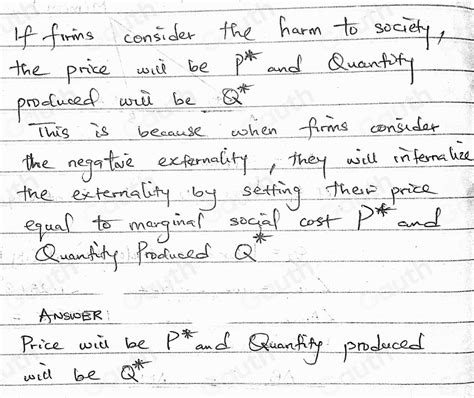 If firms consider the harm to society,
the price will be P* and Quantity
produced will be Q*
This is because when firms consider
the negative externality, they will internalize
the externality by setting their price
equal to marginal social cost P* and
Quantity Produced Q*
ANSWER
Price will be P* and Quantity produced
will be Q*